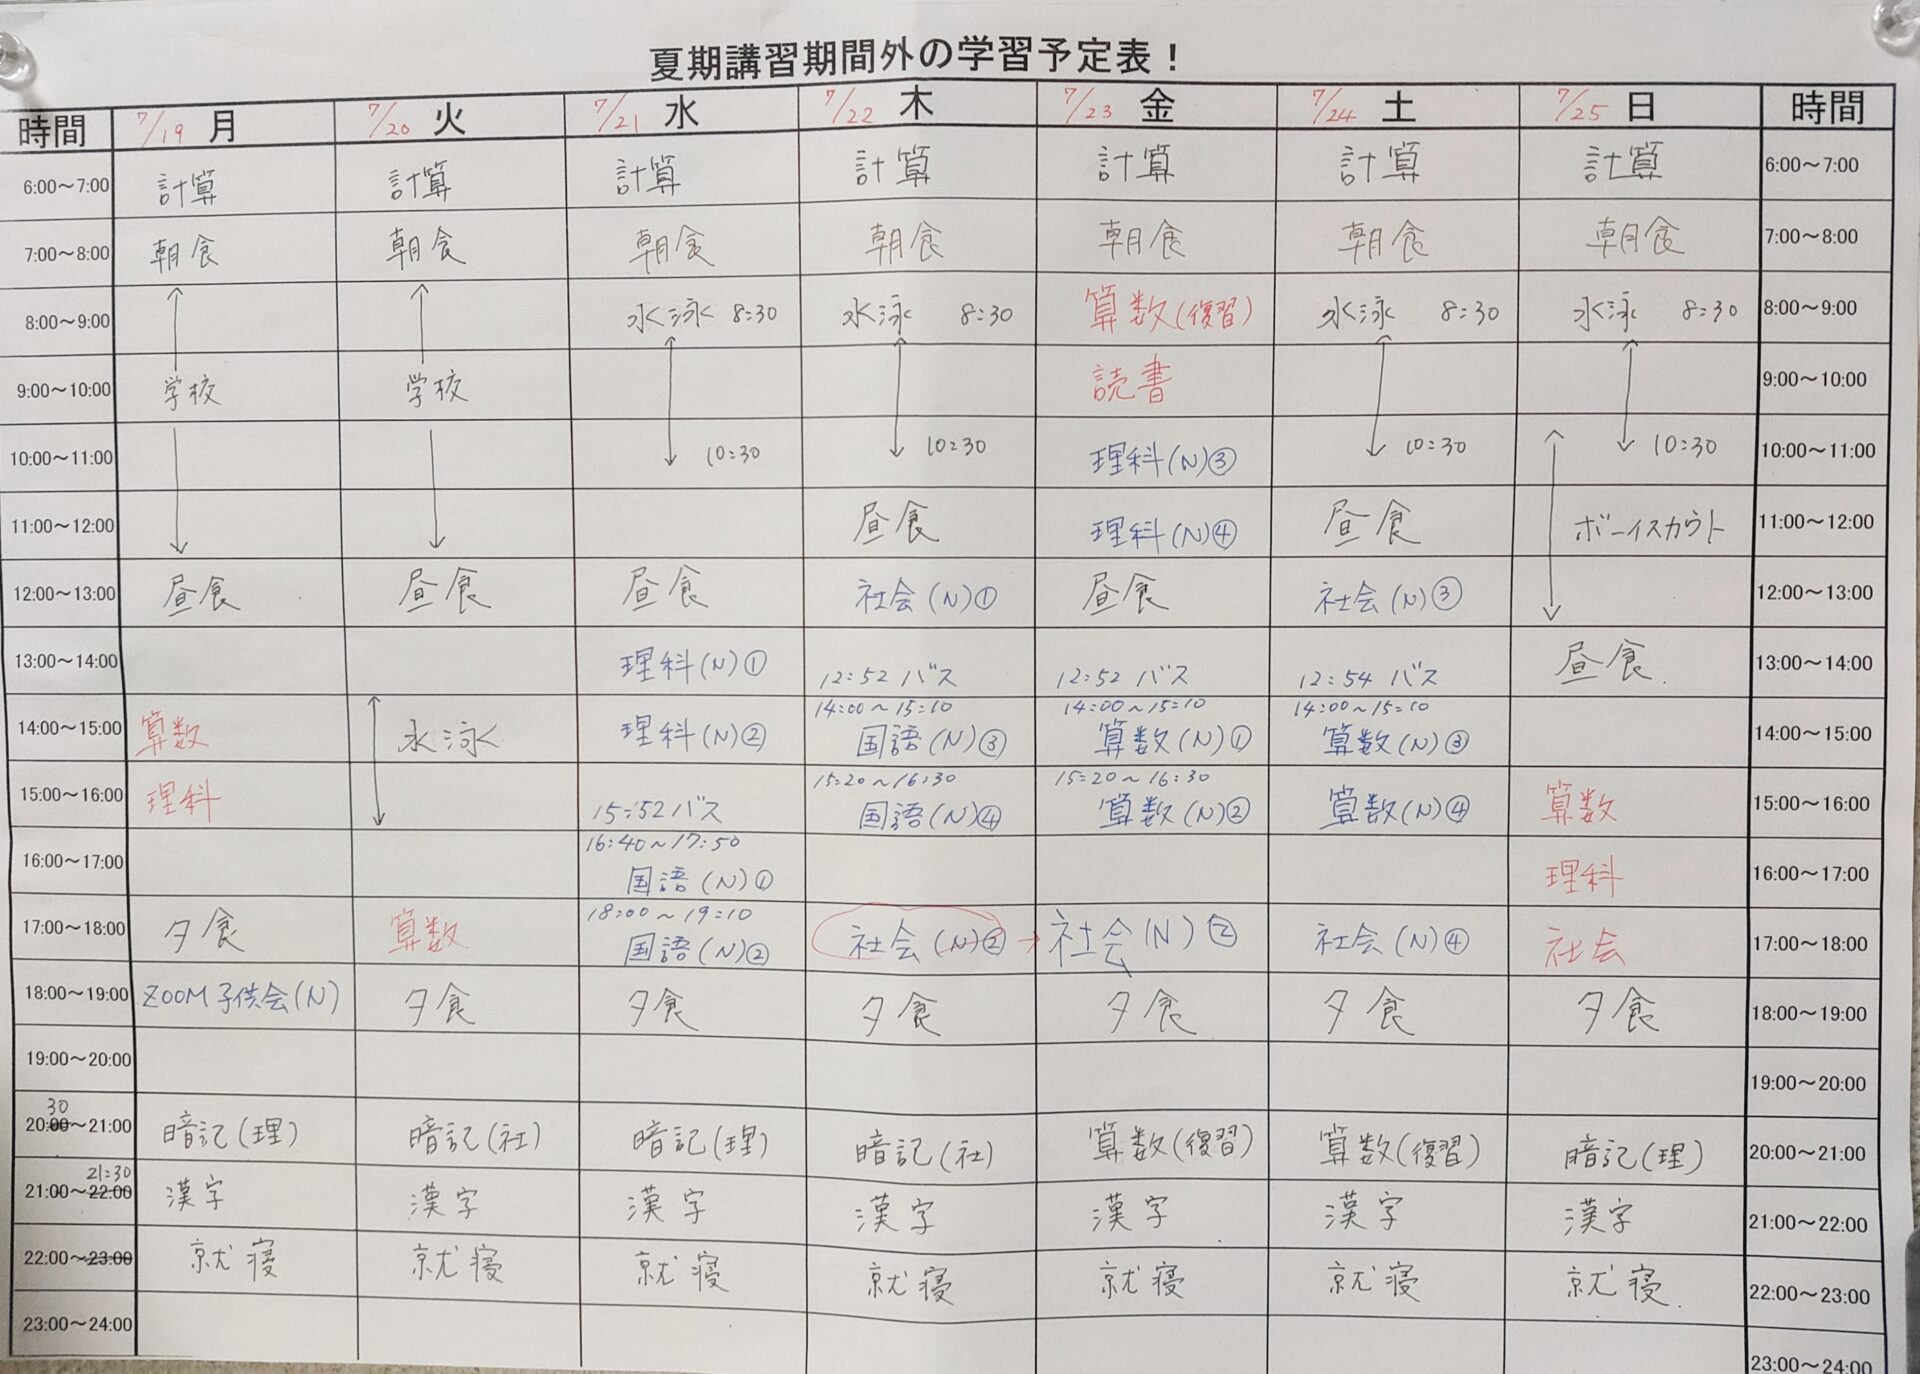 夏期講習期間外の学習予定表！
時間 7/19 月 7/20 火 7/21 水 7/22 木 7/23 金 7/24 土 7/25 日 時間
6:00～7:00 計算 計算 計算 計算 計算 計算 計算 6:00～7:00
7:00～8:00 朝食 朝食 朝食 朝食 朝食 朝食 朝食 7:00～8:00
8:00～9:00 水泳 8:30 水泳 8:30 算数(復習) 水泳 8:30 水泳 8:30 8:00～9:00
9:00～10:00 学校 学校 読書 9:00～10:00
10:00～11:00 10:30 10:30 理科(N)③ 10:30 10:30 10:00～11:00
11:00～12:00 昼食 理科(N)④ 昼食 ボーイスカウト 11:00～12:00
12:00～13:00 昼食 昼食 昼食 社会(N)① 昼食 社会(N)③ 12:00～13:00
13:00～14:00 理科(N)① 12:52 バス 12:52 バス 12:54 バス 昼食. 13:00～14:00
14:00～15:10 14:00～15:10 14:00～15:10
14:00～15:00 算数 水泳 理科(N)② 国語(N)③ 算数(N)① 算数(N)③ 14:00～15:00
15:20～16:30 15:20～16:30
15:00～16:00 理科 15:52 バス 国語(N)④ 算数(N)② 算数(N)④ 算数 15:00～16:00
16:40～17:50
16:00～17:00 国語(N)① 理科 16:00～17:00
18:00～19:10
17:00～18:00 夕食 算数 国語(N)② 社会(N)② → 社会(N)② 社会(N)④ 社会 17:00～18:00
18:00～19:00 ZOOM子供会(N) 夕食 夕食 夕食 夕食 夕食 夕食 18:00～19:00
19:00～20:00 19:00～20:00
30
20:00～21:00 暗記(理) 暗記(社) 暗記(理) 暗記(社) 算数(復習) 算数(復習) 暗記(理) 20:00～21:00
21:30
21:00～22:00 漢字 漢字 漢字 漢字 漢字 漢字 漢字 21:00～22:00
22:00～23:00 就寝 就寝 就寝 就寝 就寝 就寝 就寝. 22:00～23:00
23:00～24:00 23:00～24:00